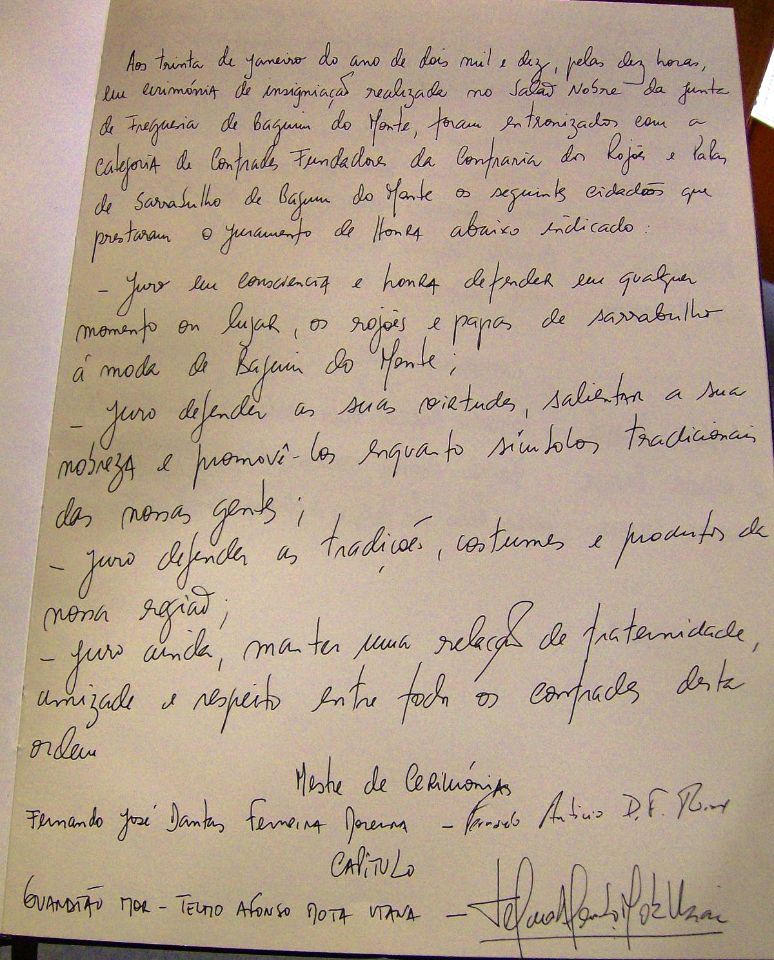 Aos trinta de Janeiro do ano de dois mil e dez, pelas dez horas,
em cerimónia de insigniação realizada no Salão Nobre da Junta
de Freguesia de Baguim do Monte, foram entronizados com a
categoria de Confrades Fundadores da Confraria dos Rojões e Papas
de Sarrabulho de Baguim do Monte os seguintes cidadãos que
prestaram o Juramento de Honra abaixo indicado:
- Juro em consciência e honra defender em qualquer
momento ou lugar, os rojões e papas de sarrabulho
á moda de Baguim do Monte;
- Juro defender as suas virtudes, salientar a sua
nobreza e promovê-los enquanto símbolos tradicionais
das nossas gentes;
- Juro defender as tradições, costumes e produtos da
nossa região;
- Juro ainda, manter uma relação de fraternidade,
amizade e respeito entre todos os confrades desta
ordem
Mestre de Cerimónias
Fernando José Dantas Ferreira Moreira - Fernando D. F.
CAPÍTULO
Guardião Mor - Telmo Afonso Mota Viana - Telmo Afonso Mota Viana